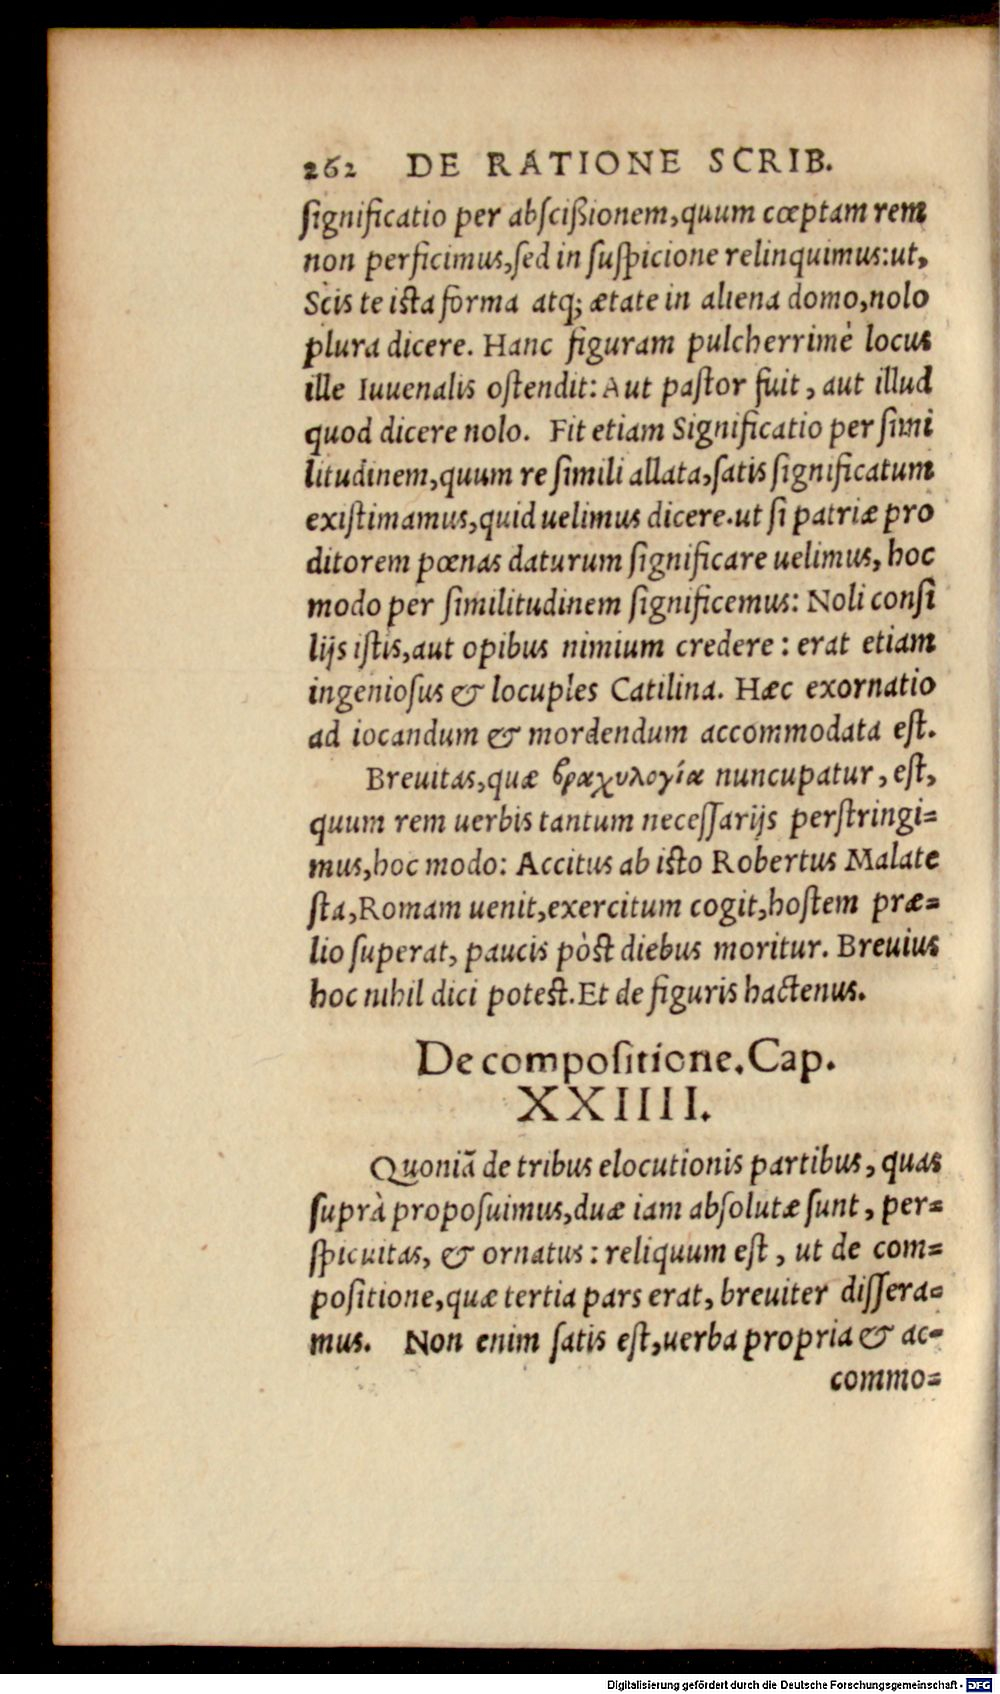 262 DE RATIONE SCRIB.
ſignificatio per abſcißionem,quum cœptam rem
non perficimus,ſed in ſuſpicione relinquimus:ut,
Scis te iſta forma atq; ætate in aliena domo,nolo
plura dicere. Hanc figuram pulcherrimè locus
ille Iuuenalis oſtendit: Aut paſtor fuit, aut illud
quod dicere nolo. Fit etiam Significatio per ſimi
litudinem,quum re ſimili allata,ſatis ſignificatum
exiſtimamus,quid uelimus dicere.ut ſi patriæ pro
ditorem pœnas daturum ſignificare uelimus, hoc
modo per ſimilitudinem ſignificemus: Noli conſi
lijs iſtis,aut opibus nimium credere: erat etiam
ingenioſus & locuples Catilina. Hæc exornatio
ad iocandum & mordendum accommodata eſt.
Breuitas,quæ βραχυλογία nuncupatur, eſt,
quum rem uerbis tantum neceſſarijs perſtringi=
mus,hoc modo: Accitus ab iſto Robertus Malate
ſta,Romam uenit,exercitum cogit,hoſtem præ=
lio ſuperat, paucis pòſt diebus moritur. Breuius
hoc nihil dici poteſt.Et de figuris hactenus.
De compoſitione. Cap.
XXIIII.
Quoniã de tribus elocutionis partibus, quas
ſuprà propoſuimus,duæ iam abſolutæ ſunt, per=
ſpicuitas, & ornatus: reliquum eſt, ut de com=
poſitione,quæ tertia pars erat, breuiter diſſera=
mus. Non enim ſatis eſt,uerba propria & ac=
commo=
Digitalisierung gefördert durch die Deutsche Forschungsgemeinschaft - DFG